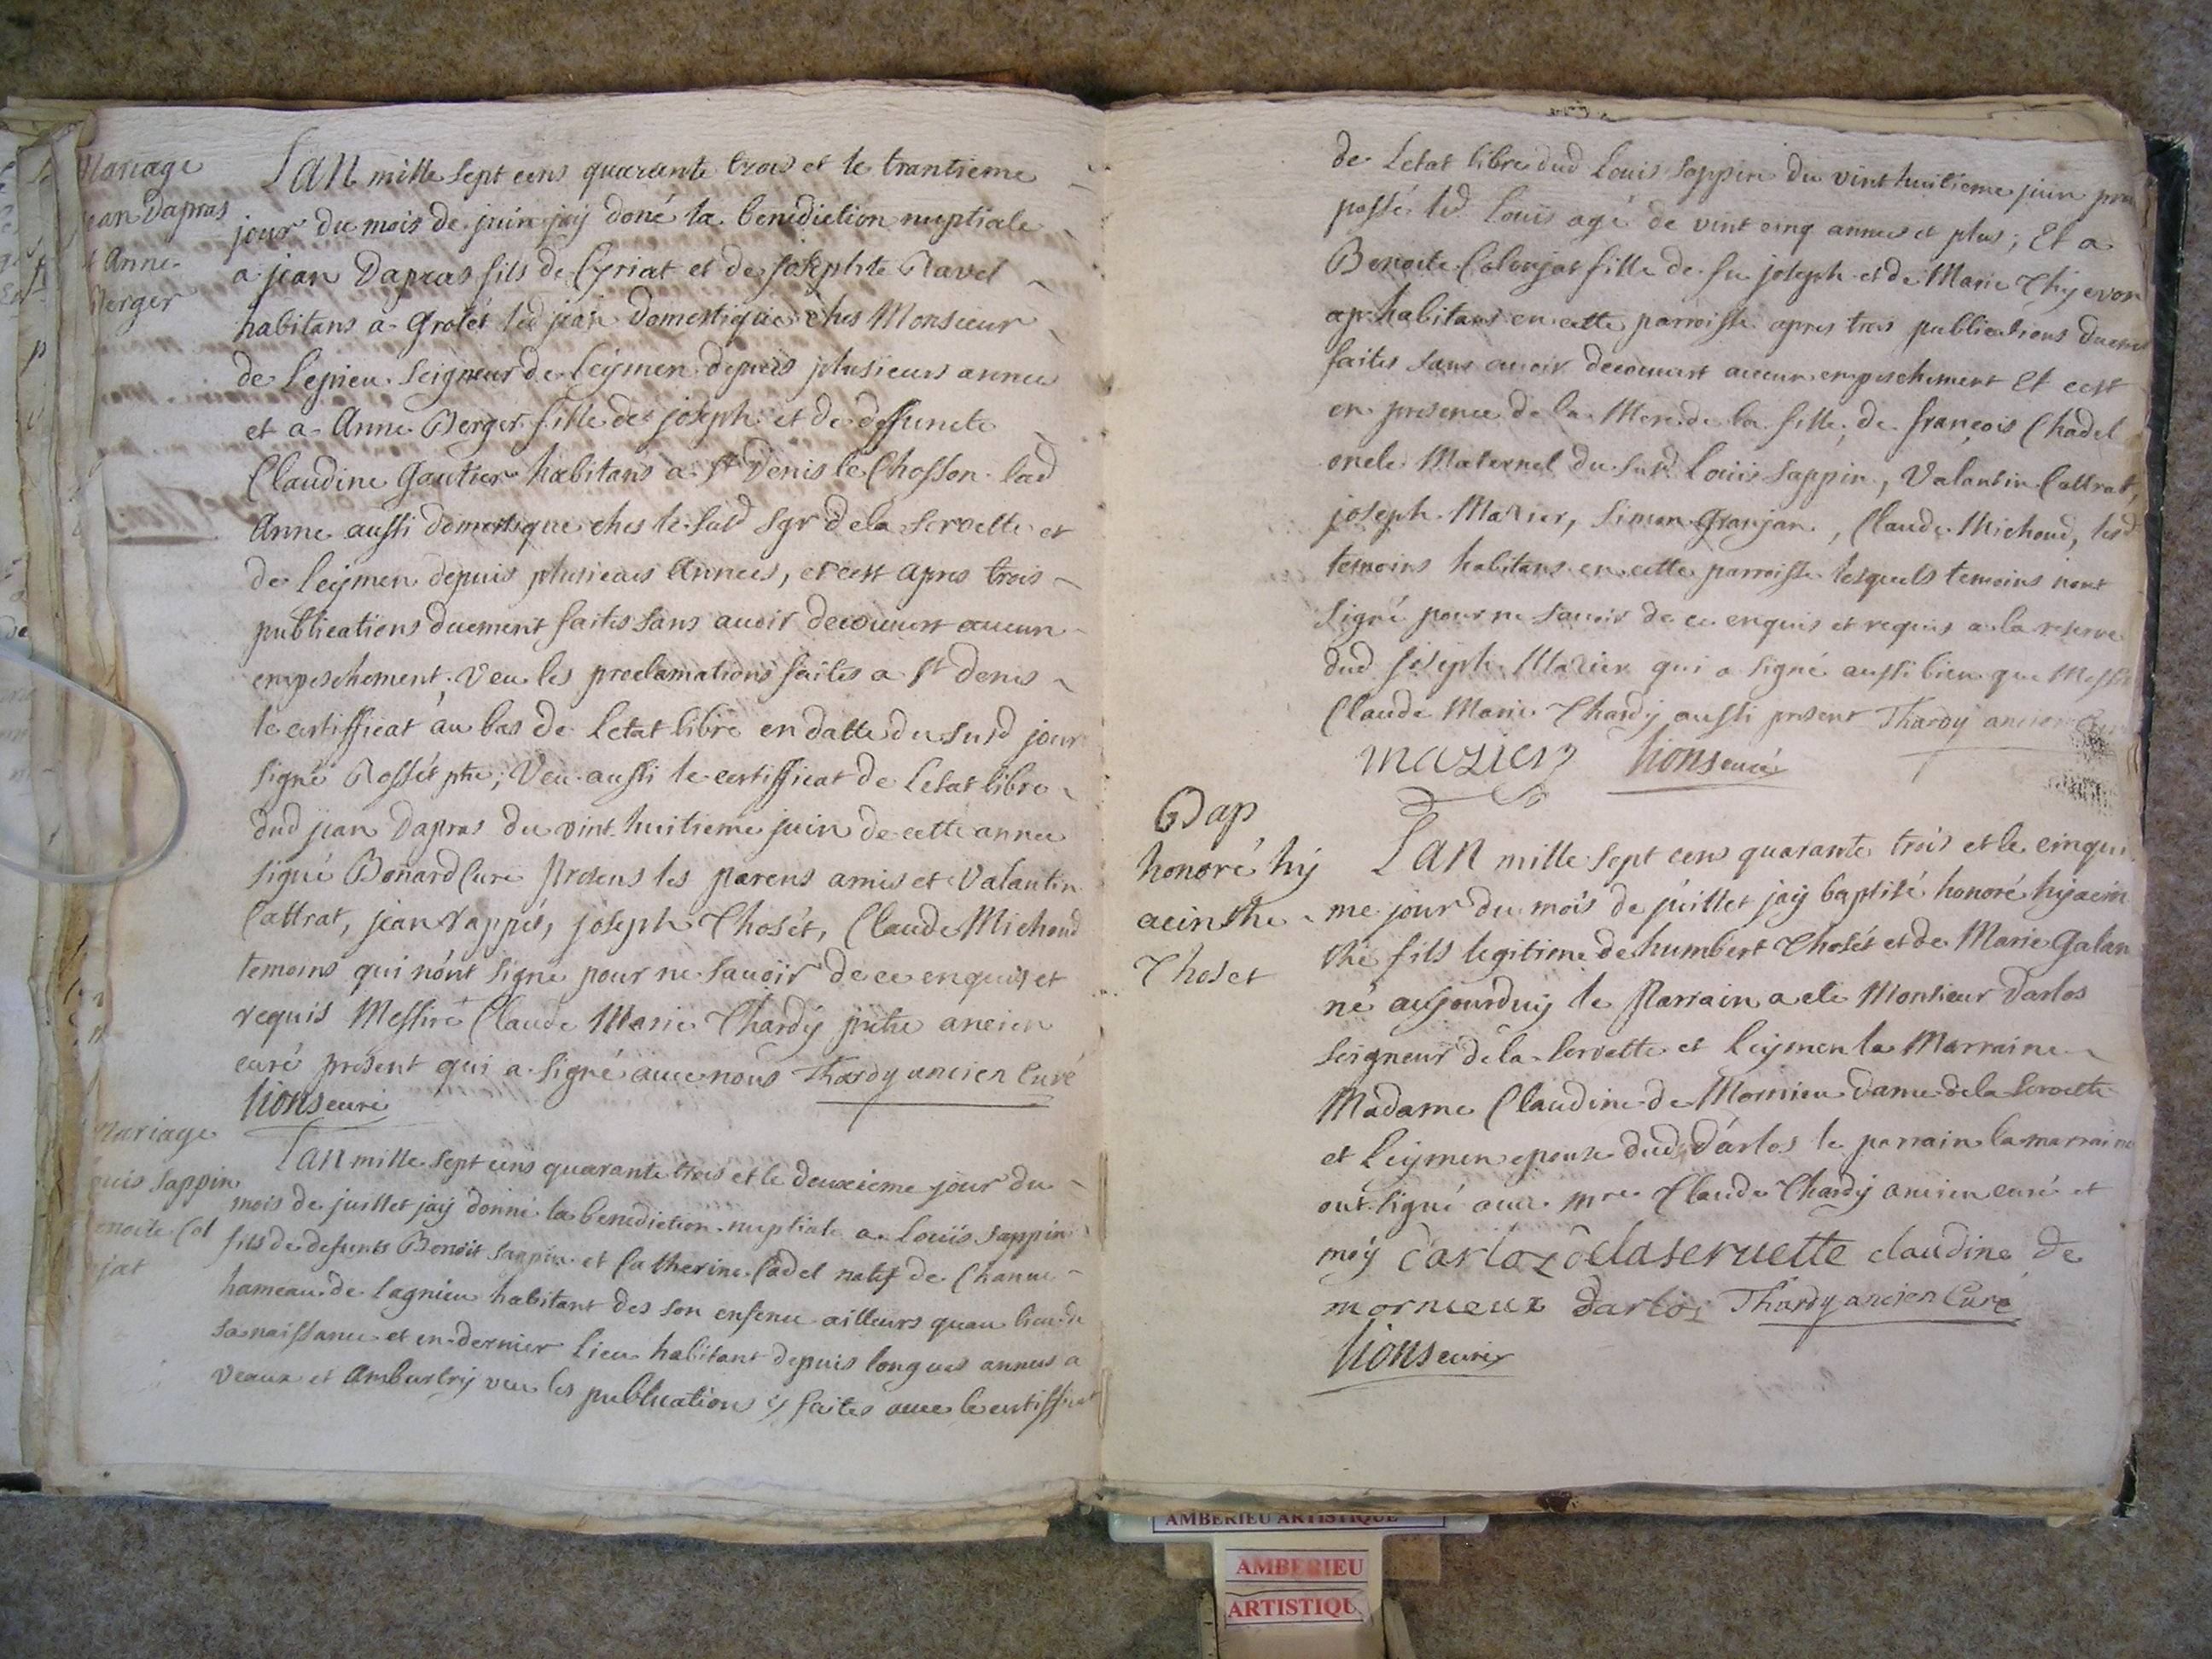 Mariage
Jean Dapras
et Anne
Berger
Lan mille sept cens quarante trois et le trantieme
jour du mois de juin jaÿ doné la benediction nuptiale
a jean Dapras fils de Cyriat et de josephte Ravel
habitans a Grolét led jean domestique ches Monsieur
de Lepieu Seigneur de Leÿmen depuis plusieurs annees
et a Anne Berger fille de joseph et de deffuncte
Claudine Gautier habitans a St Denis le Chosson lad
Anne aussi domestique ches le susd sgr dela servette et
de Leÿmen depuis plusieurs Années, et cest apres trois
publications duement faites sans avoir decouvert aucun
empeschement, veu les proclamations faites a St denis
le certifficat au bas de Letat libre en datte du susd jour
signé Rossét ptre; Veu aussi le certifficat de Letat libre
dud jean Dapras du vint huitieme juin de cette annee
signé Bonard Curé presens les parens amis et Valantin
Cattrat, jean rappét, joseph Thosét, Claude Michoud
temoins qui n'ont signe pour ne savoir de ce enquis et
requis Messire Claude Marie Thardÿ prètre ancien
curé present qui a signé avec nous Thardy ancien Curé
Lions curé
Mariage
Louis sappin
enoite Col
jat
Lan mille sept cens quarante trois et le deuxieme jour du
mois de juillet jaÿ donné la benediction nuptiale a Louis sappin
fils de defunts Benoit sappin et Catherine Cadel natif de Chanue
hameau de Lagnieu habitant des son enfence ailleurs quau lieu de
sa naissance et en dernier lieu habitant depuis longues annees a
Veaux et Amburtrÿ veu les publications ÿ faites avec le certifficat
de Letat libre dud Louis sappin du vint huitieme juin
passé led Louis agé de vint cinq annees et plus; Et a
Benoite Colonjat fille de fu joseph et de Marie Thÿevon
habitans en cette parroisse apres trois publications duement
faites sans avoir decouvert aucun empeschement Et cest
en presence de la Mere de la fille, de françois Chadel
oncle Maternel du susd Louis sappin, Valantin Cattrat,
joseph Mazier, Simon Granjan, Claude Michoud, lesd
temoins habitans en cette parroisse lesquels temoins nont
signé pour ne savoir de ce enquis et requis a la reserve
dud joseph Mazier qui a signé aussi bien que Messire
Claude Marie Thardÿ aussi present Thardy ancien Curé
mazier Lions curé
Bap
honoré hÿ
acinthe
Thoset
Lan mille sept cens quarante trois et le cinquie
me jour du mois de juillet jaÿ baptisé honoré hÿacin
the fils legitime de humbert Thosét et de Marie Galan
né aujourduÿ le Parrain a ete Monsieur Darlos
seigneur dela servette et Leÿmen la Marraine
Madame Claudine de Mornieu Dame dela servette
et Leÿmen epouse dud Darlos le parrain la marraine
ont signé avec mre Claude Thardÿ ancien curé et
moÿ Darloz delaseruette claudine de
mornieux darloz Thardy ancien Curé
Lions curé
AMBERIEU ARTISTIQUE
AMBERIEU
ARTISTIQU